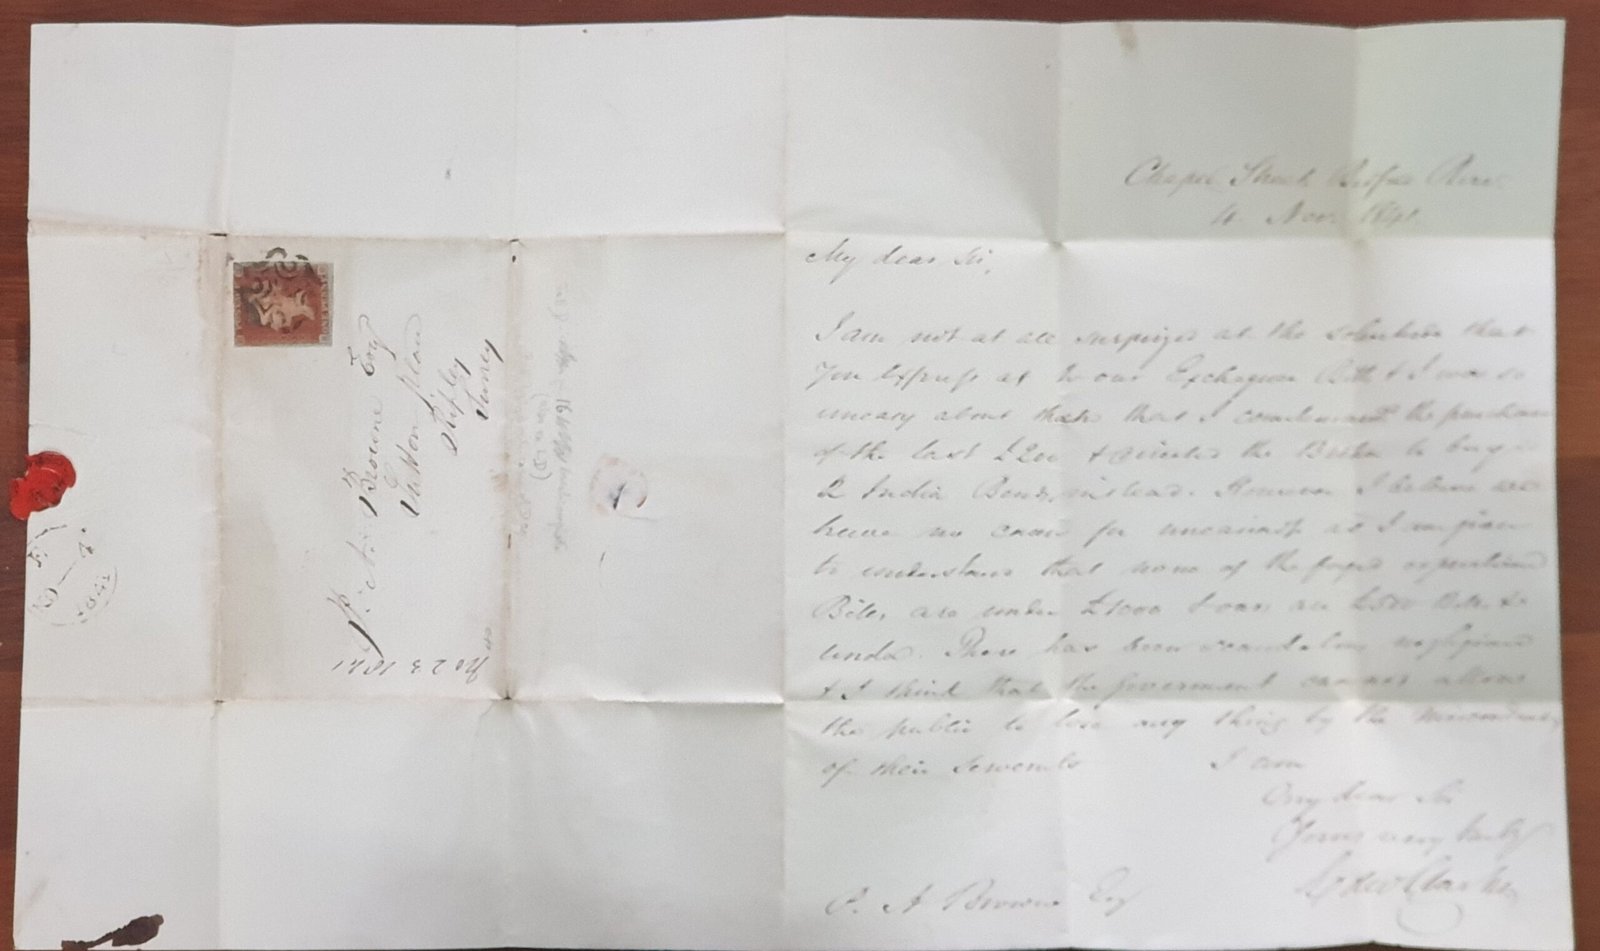 Chapel Street Bedford Row
4 Nov. 1841.
My dear Sir,
I am not at all surprized at the solicitude that
you express as to our Exchequer Bills & I was so
uneasy about them that I countermanded the purchase
of the last £200 & directed the Broker to buy
2 India Bonds instead. However I believe we
have no cause for uneasiness as I am given
to understand that none of the forged
Bills are under £1000 & ours are £500 Bills &
under. There has been scandalous negligence
& I think that the government cannot allow
the public to lose any thing by the
of their servants I am
my dear Sir
Yours very truly
Clarke
P. A. Browne Esq
P. A. Browne Esq
Sutton place
Ripley
Surrey
No 23 1841
1841